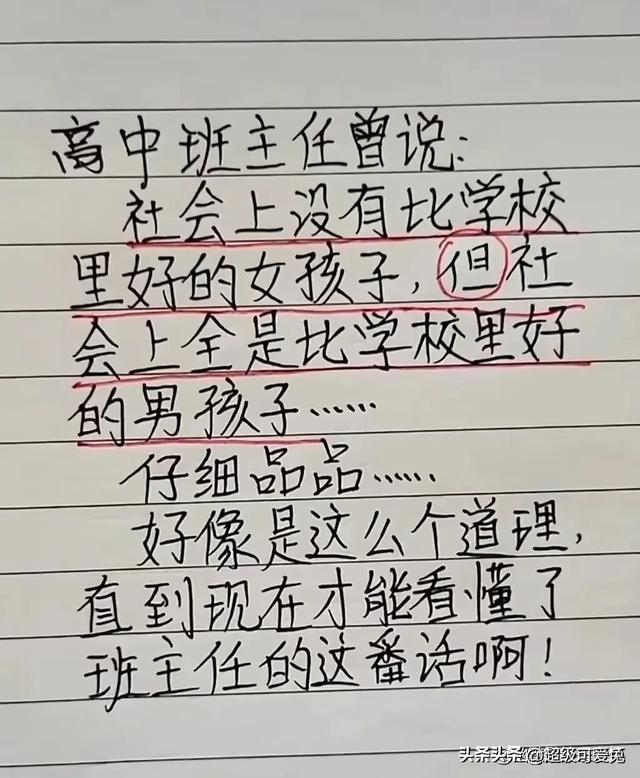 高中班主任曾说:
社会上没有比学校
里好的女孩子,但社
会上全是比学校里好
的男孩子……
仔细品品……
好像是这么个道理,
直到现在才能看懂了
班主任的这番话啊!
头条@超级可爱兔